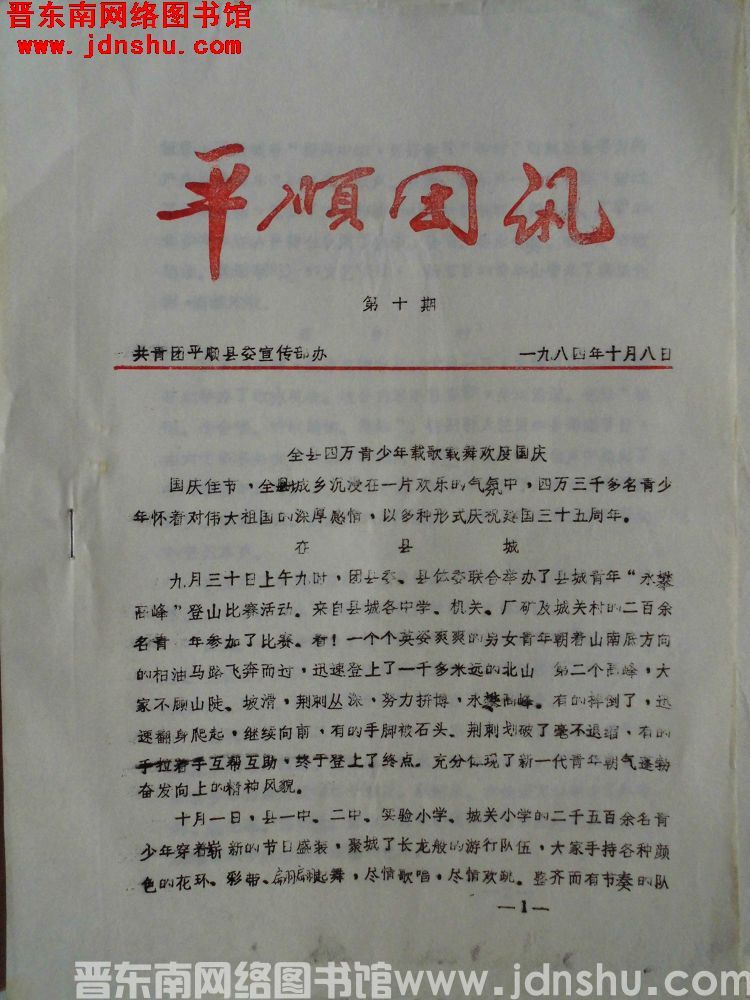 晋东南网络图书馆
www.jdnshu.com
平顺团讯
第十期
共青团平顺县委宣传部办 一九八四年十月八日
全县四万青少年载歌载舞欢度国庆
国庆佳节，全县城乡沉浸在一片欢乐的气氛中，四万三千多名青少
年怀着对伟大祖国的深厚感情，以多种形式庆祝建国三十五周年。
在县城
九月三十日上午九时，团县委、县体委联合举办了县城青年“永攀
高峰”登山比赛活动。来自县城各中学、机关、厂矿及城关村的二百余
名青 年参加了比赛。看！一个个英姿爽爽的男女青年朝着山南底方向
的柏油马路飞奔而过，迅速登上了一千多米远的北山 第二个高峰，大
家不顾山陡、坡滑，荆刺丛深，努力拼博，永攀高峰。有的摔倒了，迅
速翻身爬起，继续向前，有的手脚被石头、荆刺划破了毫不退缩，有的
手拉着手互帮互助，终于登上了终点。充分体现了新一代青年朝气蓬勃
奋发向上的精神风貌。
十月一日，县一中、二中、实验小学、城关小学的二千五百余名青
少年穿着崭新的节日盛装，聚城了长龙般的游行队伍，大家手持各种颜
色的花环、彩带、翩翩起舞，尽情歌唱，尽情欢跳。整齐而有节奏的队
—1—
晋东南网络图书馆www.jdnshu.com